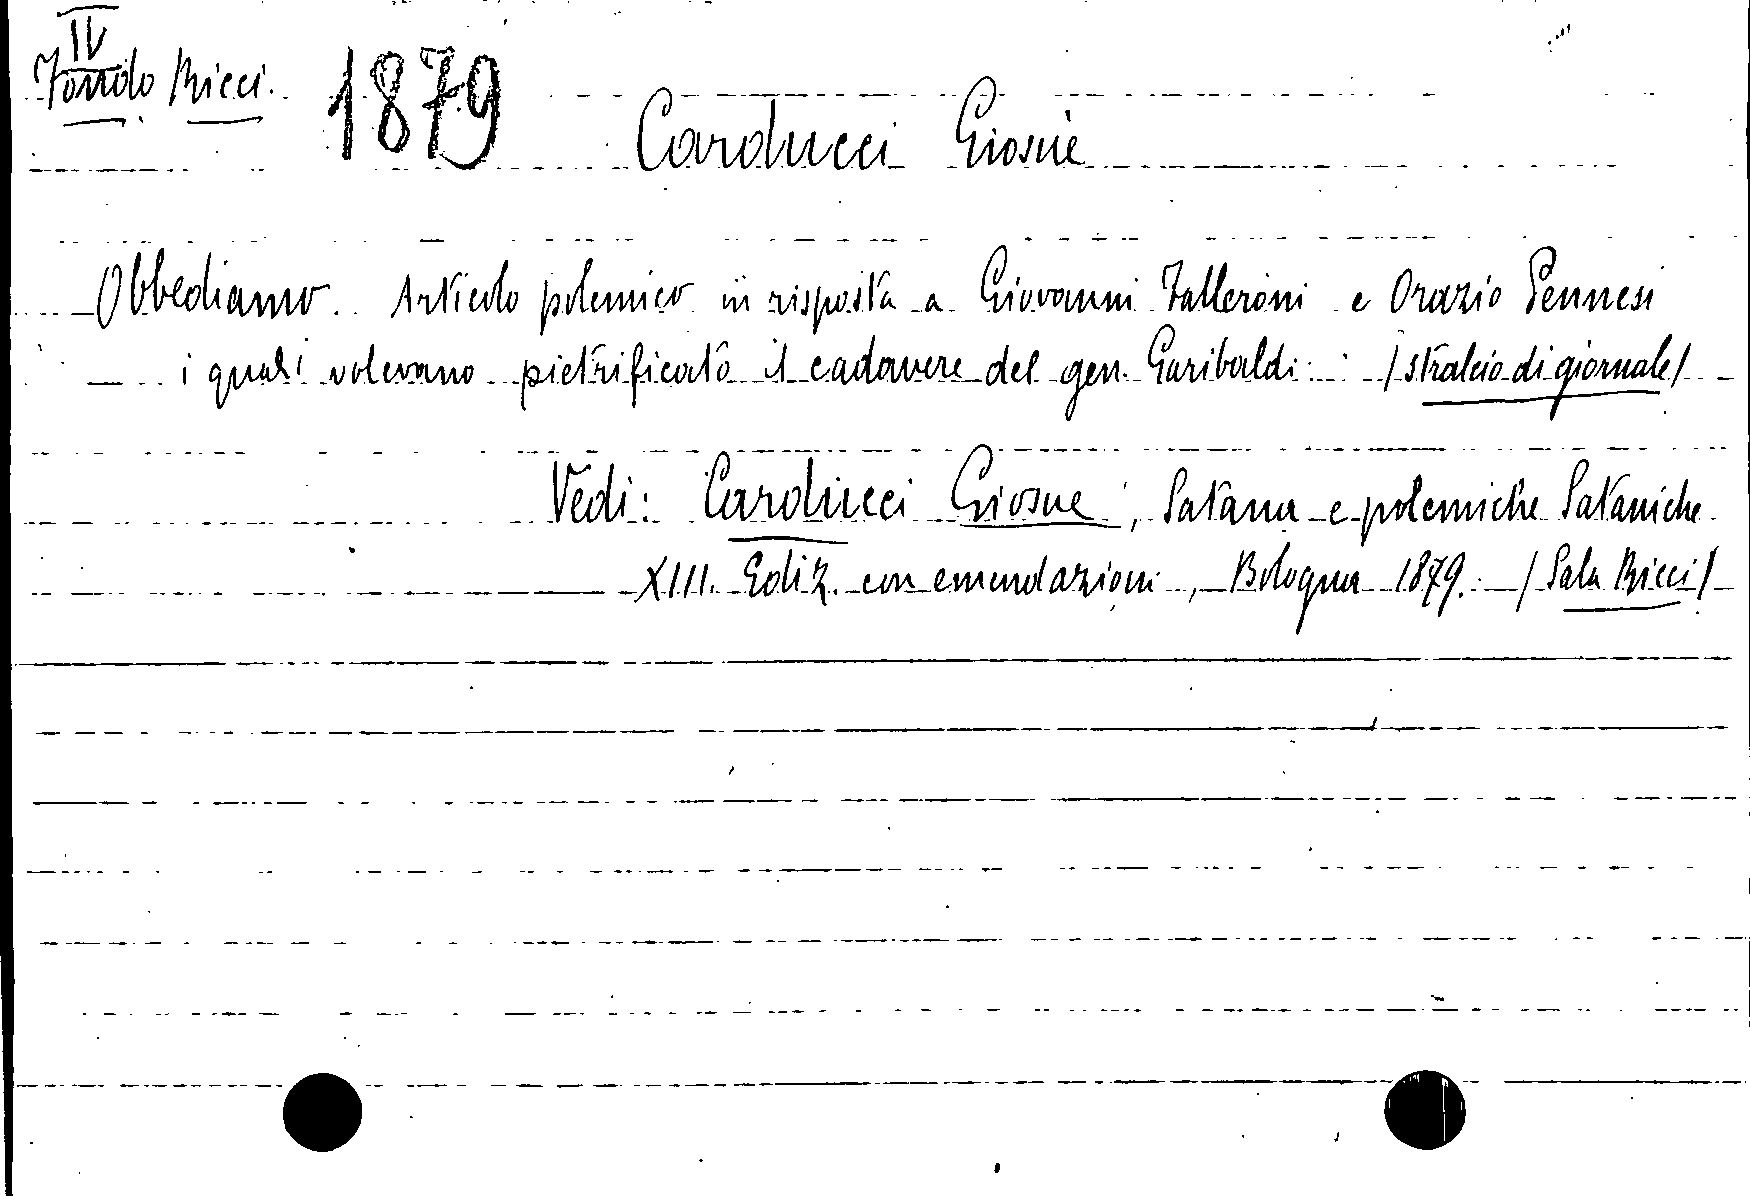 IV
Fondo Ricci. 1879 Carducci Giosuè
Obbediamo. Articolo polemico in risposta a Giovanni Falleroni e Orazio Pennesi
i quali volevano pietrificato il cadavere del gen. Garibaldi. /stralcio di giornale/
Vedi: Carducci Giosue, Satana e polemiche Sataniche
XIII. Ediz. con emendazioni, Bologna 1879. /Sala Ricci/